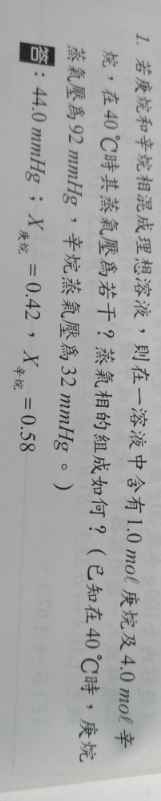 1. 若庚烷和辛烷相混成理想溶液，則在一溶液中含有1.0 moℓ 庚烷及4.0 moℓ 辛
烷，在40℃時其蒸氣壓為若干？蒸氣相的組成如何？（已知在40℃時，庚烷
蒸氣壓為92 mmHg，辛烷蒸氣壓為32 mmHg。）
答：44.0 mmHg；X庚烷 =0.42，X辛烷 =0.58